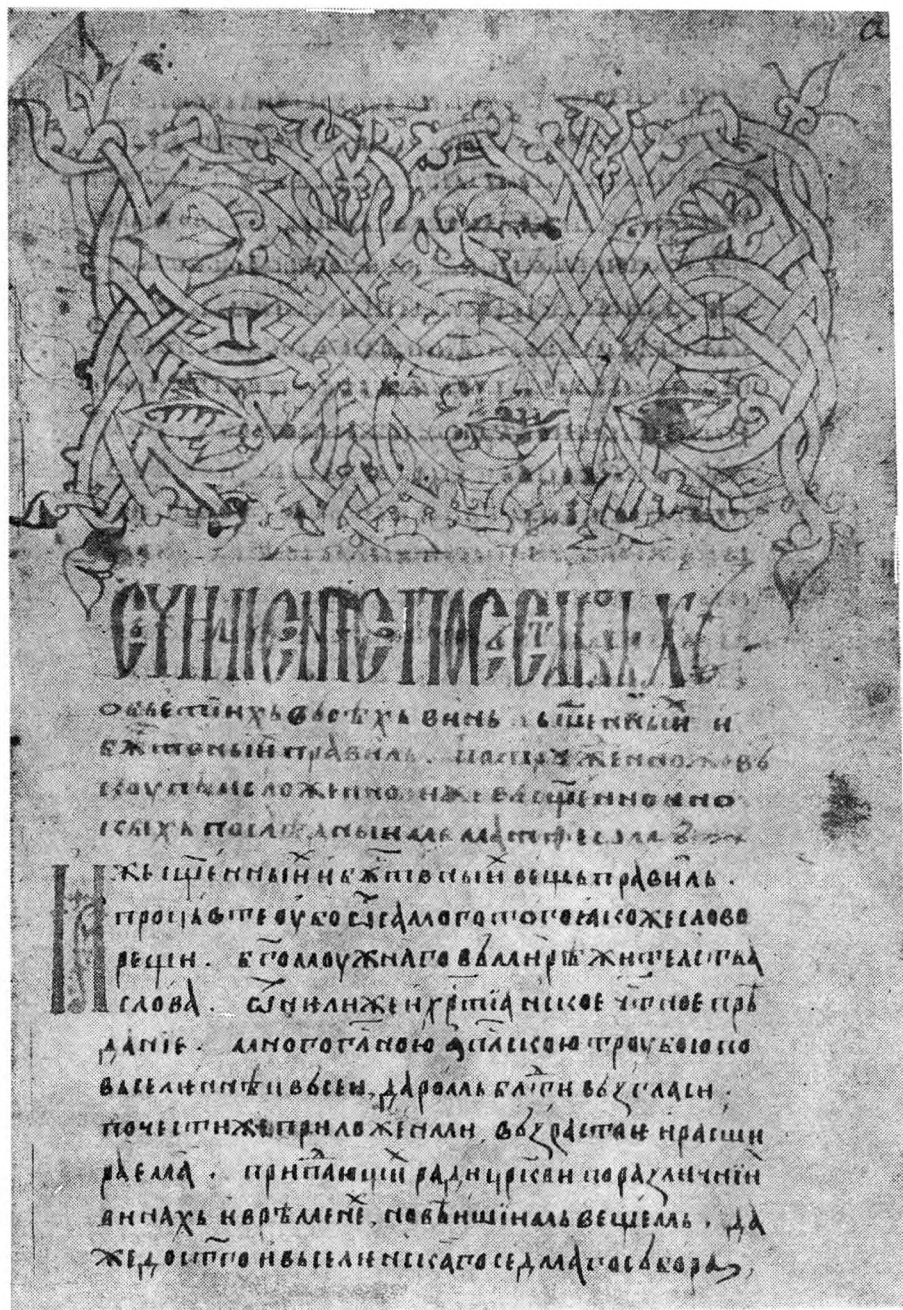 а
ѡбьетіихь вьсѣхь винь · сщ҃енныиⷯ и
бжⷭтвныиⷯ правиль . потрꙋженно же вь
коупѣ и сложенно · иже вь сщ҃енноино
кыхь послѣднымь матѳеѡмь
Иже сщ҃енныиⷯ и бжⷭтвныиⷯ вещь правиль .
процьвте оубо ѿ самого того ꙗкоже слово
рещи . бг҃омоужнаго вь мирѣ жителства
слова . ѿнилиже и хрⷭтіанское чⷭтное прѣ
даніе . многогл҃ною ап҃лскою троубою по
вьселеннѣи вьсеи, даромь блгⷣти вьзгласи .
почести же приложенми, вьзрастаи и расши
раемаа . припаⷣющіиⷯ ради цр҃кви по различніиⷯ
винахь и врѣмене, новѣишіимь вещемь . да
же до ст҃го и вьселенскаго седмаго сьбора,